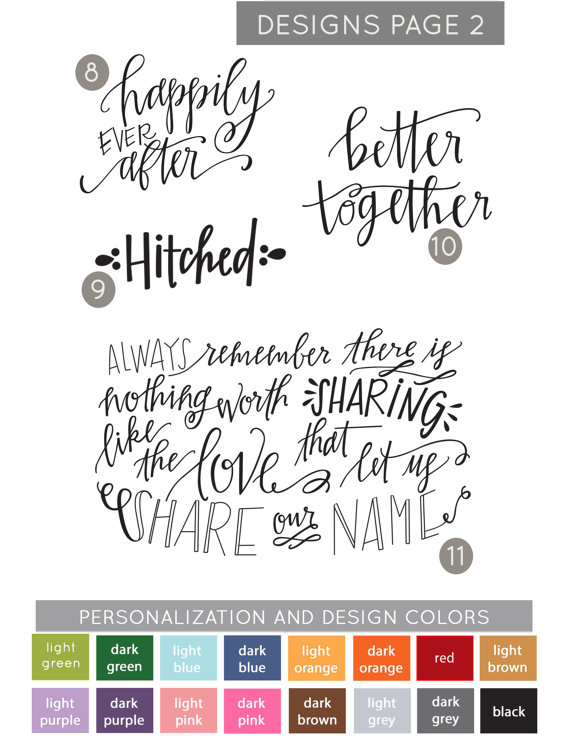 DESIGNS PAGE 2
8
happily
EVER
after
better
together
10
Hitched
9
ALWAYS remember there is
nothing worth SHARING
like the love that let us
SHARE our NAME
11
PERSONALIZATION AND DESIGN COLORS
light green
dark green
light blue
dark blue
light orange
dark orange
red
light brown
light purple
dark purple
light pink
dark pink
dark brown
light grey
dark grey
black